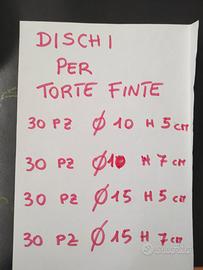 DISCHI
PER
TORTE FINTE
30 PZ Ø 10 H 5 CM
30 PZ Ø10 H 7 CM
30 PZ Ø 15 H 5 CM
30 PZ Ø 15 H 7 CM
subito